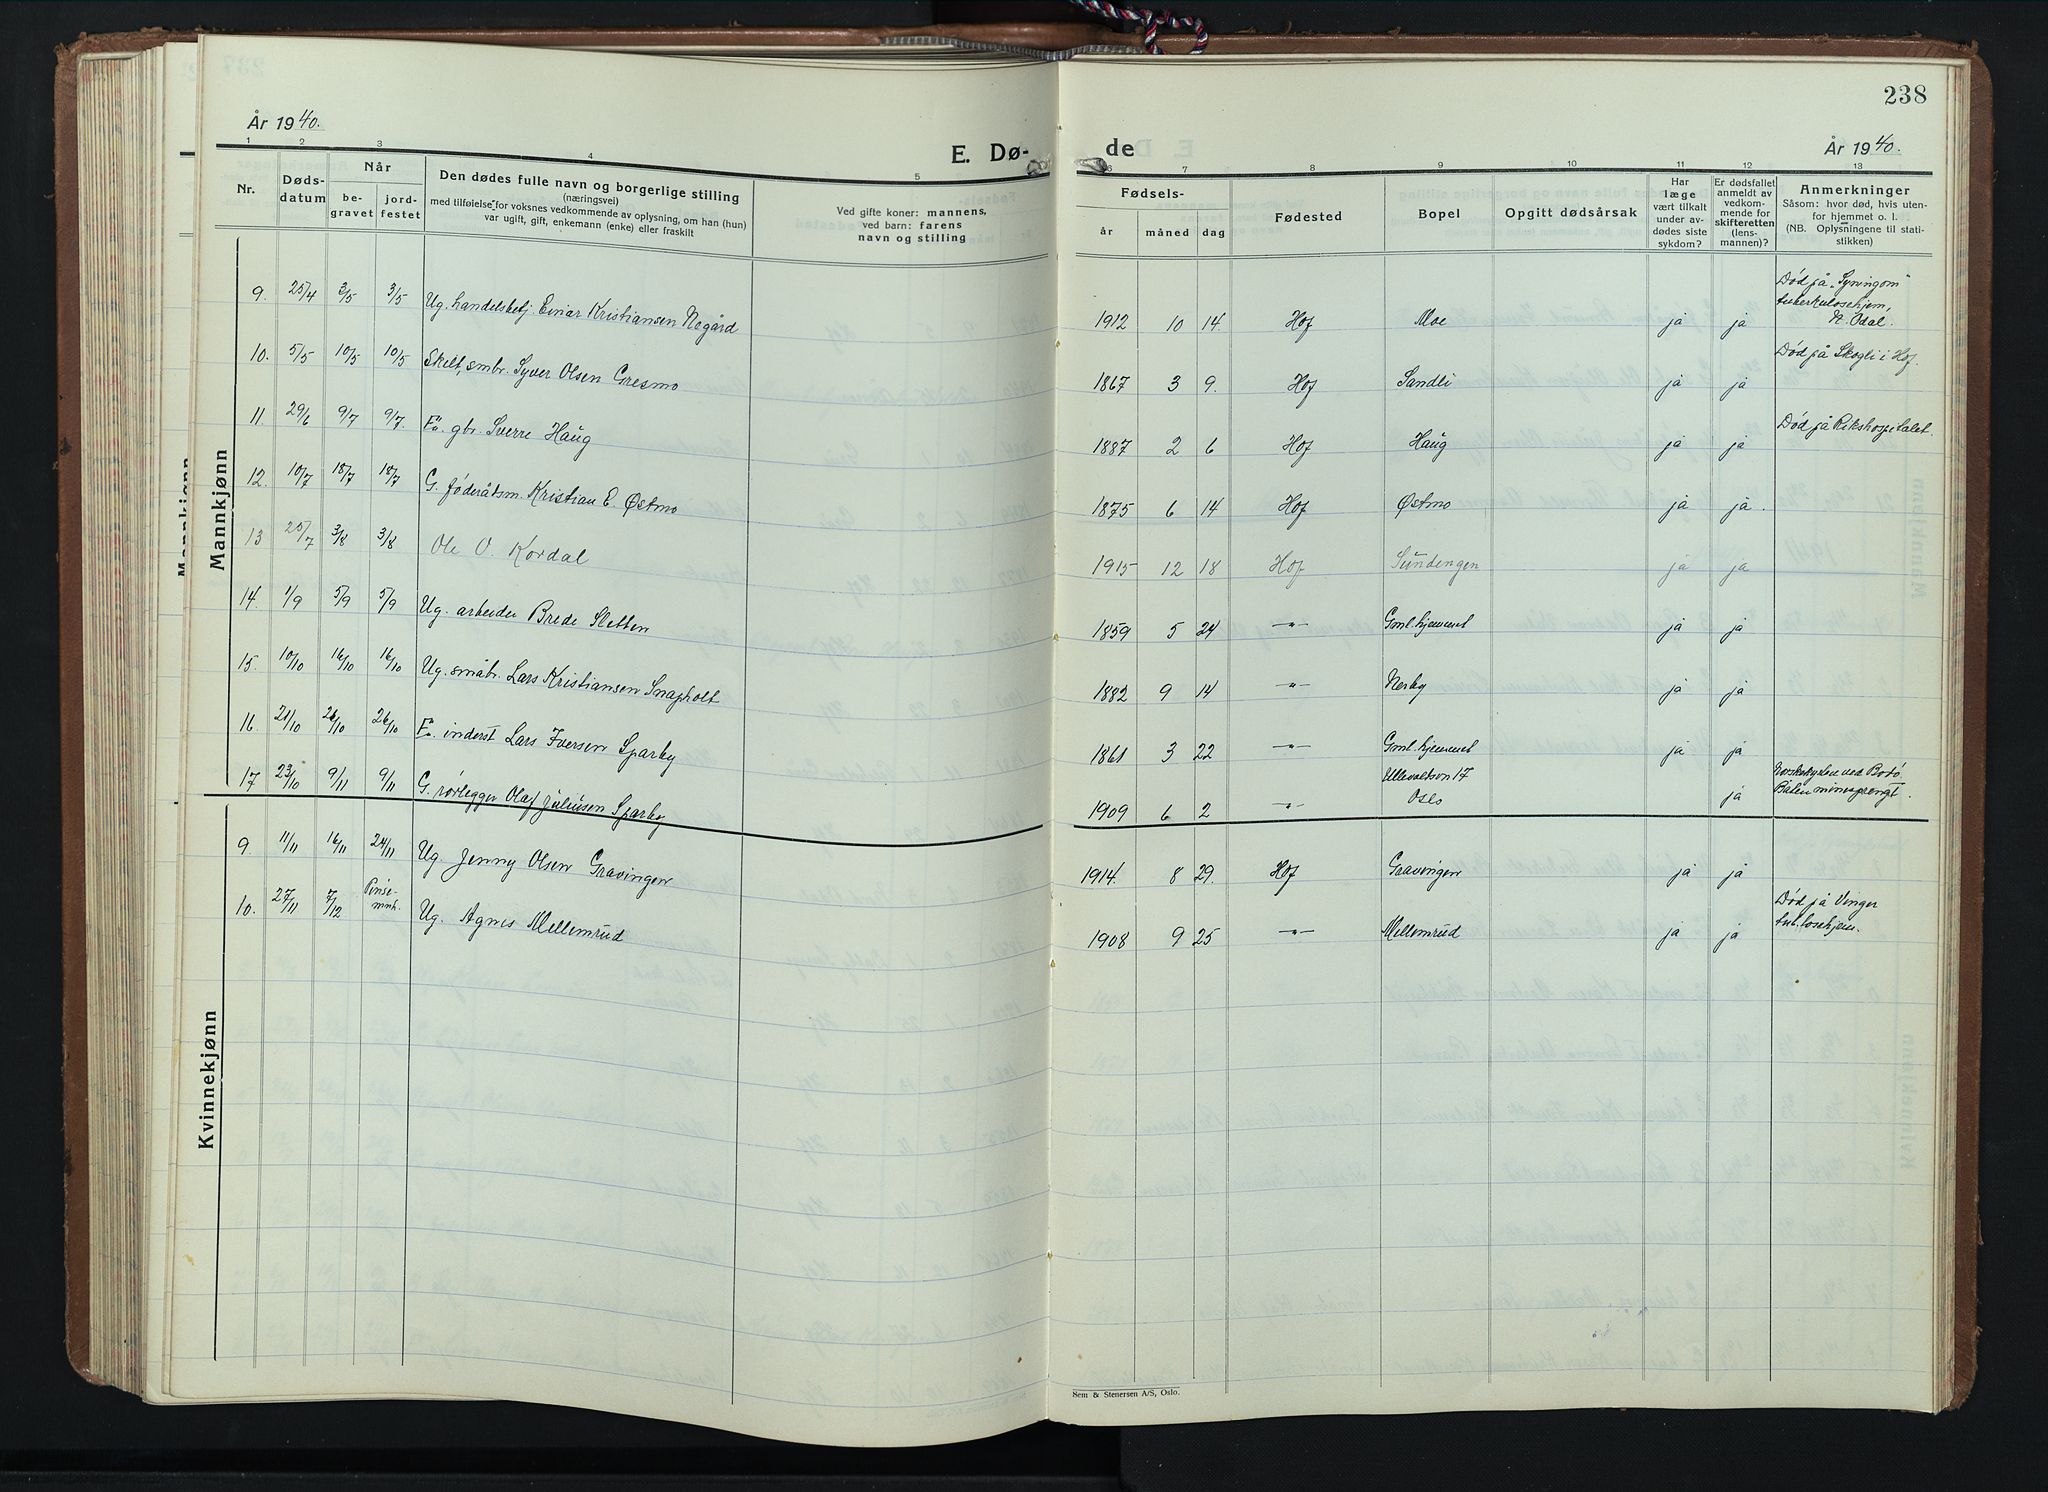 238
År 1940.
E. Dø-
de
År 1940.
1 2 3 4 5
6 7 8 9 10 11 12 13
Nr.
Døds-
datum
Når
be-
gravet
jord-
festet
Den dødes fulle navn og borgerlige stilling
(næringsvei)
med tilføielse for voksnes vedkommende av oplysning, om han (hun)
var ugift, gift, enkemann (enke) eller fraskilt
Ved gifte koner: mannens,
ved barn: farens
navn og stilling
Fødsels-
år måned dag
Fødested
Bopel
Opgitt dødsårsak
Har
læge
vært tilkalt
under av-
dødes siste
sykdom?
Er dødsfallet
anmeldt av
vedkom-
mende for
skifteretten
(lens-
mannen)?
Anmerkninger
Såsom: hvor død, hvis uten-
for hjemmet o. l.
(NB. Oplysningene til stati-
stikken)
Mannkjønn
Mannkjønn
9. 25/4 3/5 3/5 Ug. handelsbetj. Einar Kristiansen Negård 1912 10 14. Hof Moe ja ja
Død på "Syningom"
tuberkulosehjem,
N. Odal.
10. 5/5 10/5 10/5 Skilt, smbr. Syver Olsen Gresmo 1867 3 9. Hof Sandli ja ja Død på Skogli i Hof.
11. 29/6 9/7 9/7. Fr. gbr. Sverre Haug 1887 2 6 Hof Haug ja ja Død på Rikshospitalet.
12. 10/7 18/7 18/7 G. føderåtsm. Kristian E. Østmo 1875 6 14 Hof Østmo ja ja.
13 25/7 3/8 3/8 Ole O. Kordal 1915 12 18 Hof Sundengen ja ja
14. 1/9 5/9 5/9 Ug. arbeider Brede Sletten 1859 5 24 -"- Gml.hjemmet ja ja
15. 10/10 16/10 16/10 Ug. småbr. Lars Kristiansen Snapholt 1882 9 14 -"- Nerby ja ja
16. 21/10 26/10 26/10 F. inderst Lars Iversen Sparby 1861 3 22 -"- Gml.hjemmet ja ja
17 23/10 9/11 9/11 G. rørlegger Olaf Juliusen Sparby 1909 6 2 -"- Ullevoldsvn 17
Oslo ja
ved Bodø.
Båten minesprengt.
Kvinnekjønn
9. 11/11 16/11 24/11 Ug. Jenny Olsen Gravingen 1914. 8 29. Hof Gravingen ja ja
10. 27/11 7/12 Pinse-
mnk. Ug. Agnes Mellemrud 1908 9 25 -"- Mellemrud ja ja
Død på Vinger
tub.losehjem.
Sem & Stenersen A/S, Oslo.